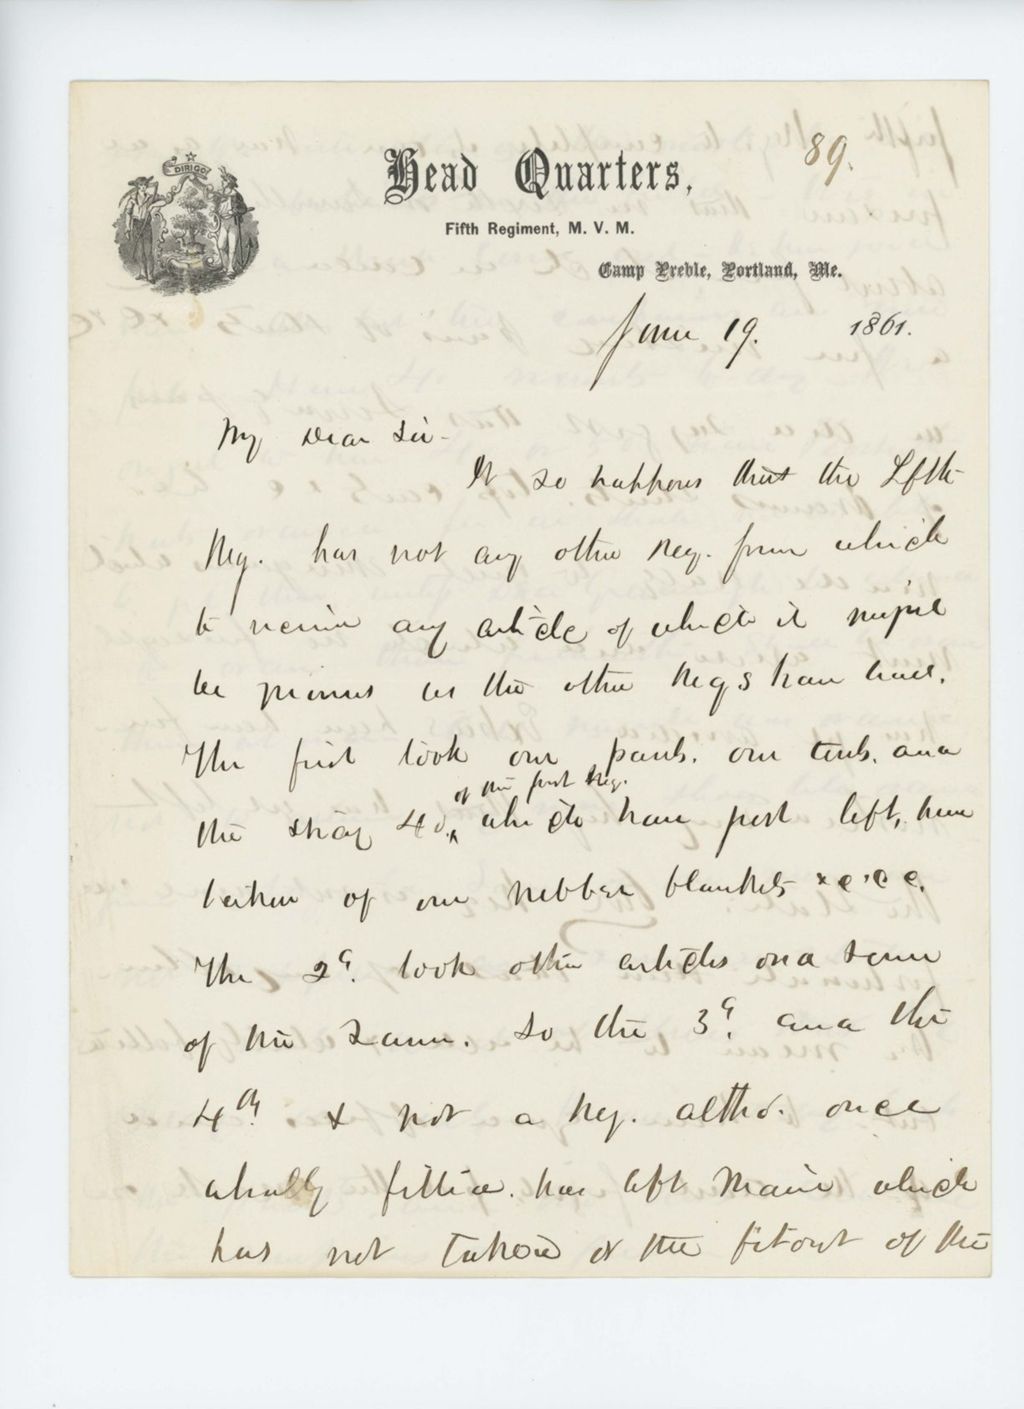 DIRIGO
Head Quarters,
89.
Fifth Regiment, M. V. M.
Camp Preble, Portland, Me.
June 19. 1861.
My Dear Sir-
It so happens that the fifth
Reg. has not any other Reg. from which
to receive any article of which it might
be minus as the other Regs have had.
The first took our pants, our tents, and
of the first Reg.
the stray 40, which have just left, have
taken of our rubber blankets &c &c &c.
The 2d. took other articles and some
of the same. So the 3d. and the
4th. & not a Reg. altho. once
wholly fitted, has left Maine which
has not taken of the fitout of the